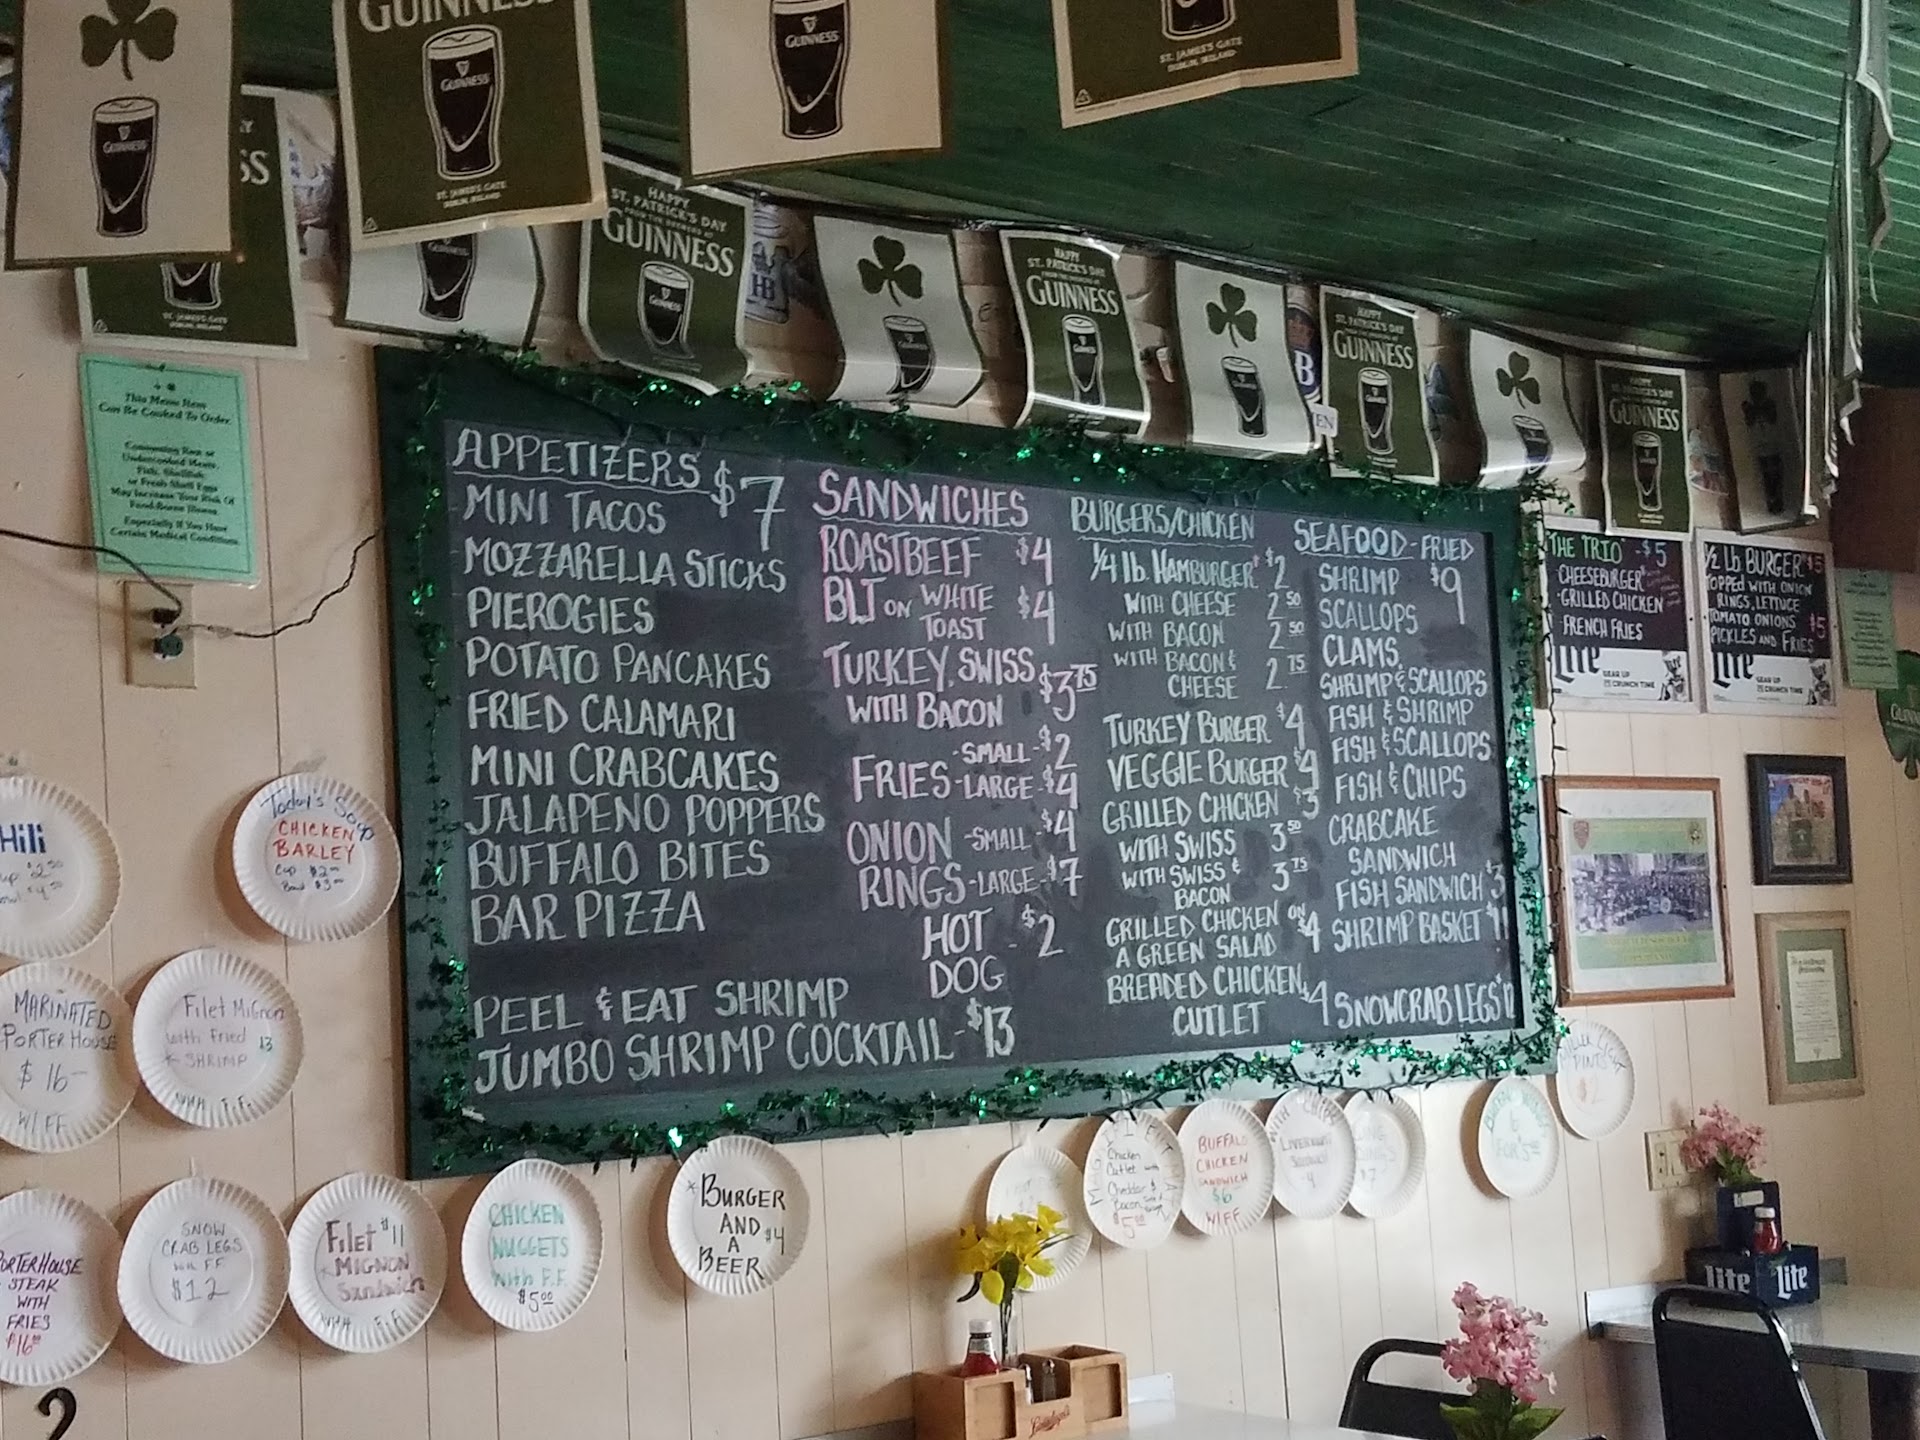 GUINNESS
GUINNESS
GUINNESS
ST. JAMES'S GATE
DUBLIN, IRELAND
GUINNESS
GUINNESS
ST. JAMES'S GATE
DUBLIN, IRELAND
ST. JAMES'S GATE
DUBLIN, IRELAND
HAPPY
ST. PATRICK'S DAY
GUINNESS
HAPPY
ST. PATRICK'S DAY
GUINNESS
HAPPY
ST. PATRICK'S DAY
GUINNESS
HAPPY
ST. PATRICK'S DAY
GUINNESS
HB
B
EN
This Menu Item
Can Be Cooked To Order
Consuming Raw or
Undercooked Meats,
Fish, Shellfish
or Fresh Shell Eggs
May Increase Your Risk Of
Food-Borne Illness,
Especially If You Have
Certain Medical Conditions
APPETIZERS $7
MINI TACOS
MOZZARELLA STICKS
PIEROGIES
POTATO PANCAKES
FRIED CALAMARI
MINI CRABCAKES
JALAPENO POPPERS
BUFFALO BITES
BAR PIZZA
PEEL & EAT SHRIMP
JUMBO SHRIMP COCKTAIL - $13
SANDWICHES
ROASTBEEF $4
BLT ON WHITE
TOAST $4
TURKEY, SWISS
WITH BACON $3 75
FRIES - SMALL - $2
- LARGE - $4
ONION - SMALL - $4
RINGS - LARGE $7
HOT - $2
DOG
BURGERS/CHICKEN
1/4 lb. HAMBURGER $2
WITH CHEESE 2 50
WITH BACON 2 50
WITH BACON &
CHEESE 2 75
TURKEY BURGER $4
VEGGIE BURGER $4
GRILLED CHICKEN $3
WITH SWISS 3 50
WITH SWISS &
BACON 3 75
GRILLED CHICKEN ON
A GREEN SALAD $4
BREADED CHICKEN
CUTLET $4
SEAFOOD - FRIED
SHRIMP $9
SCALLOPS
CLAMS
SHRIMP & SCALLOPS
FISH & SHRIMP
FISH & SCALLOPS
FISH & CHIPS
CRABCAKE
SANDWICH
FISH SANDWICH $3
SHRIMP BASKET
SNOWCRAB LEGS
THE TRIO - $5
CHEESEBURGER
· GRILLED CHICKEN
· FRENCH FRIES
Lite
GEAR UP
IT'S CRUNCH TIME
1/2 Lb. BURGER $5
TOPPED WITH ONION
RINGS, LETTUCE
TOMATO ONIONS $5
PICKLES AND FRIES
Lite
GEAR UP
IT'S CRUNCH TIME
Today's Soup
CHICKEN
BARLEY
Cup $2.00
Bowl $3.00
MARINATED
PORTER HOUSE
$16-
W/FF
Filet Mignon
with fried 13
SHRIMP
with F.F.
PORTERHOUSE
STEAK
WITH
FRIES
$16.00
SNOW
CRAB LEGS
with FF
$12
Filet $11
MIGNON
Sandwich
with F.F
CHICKEN
NUGGETS
With F.F.
$5.00
*BURGER
AND
A $4
BEER
Chicken
Cutlet with
Cheddar &
Bacon
$5.00
BUFFALO
CHICKEN
SANDWICH
$6
W/FF
6
FOR $5.00
MILLER LIGHT
PINTS
$2
Lite
Lite
2